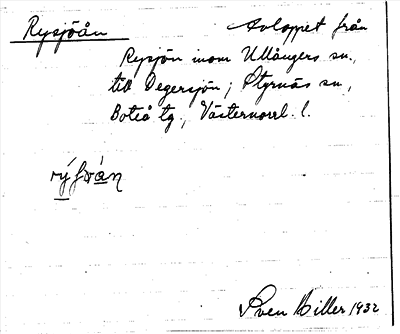 Rysjöån Avloppet från
Rysjön inom Ullångers sn.,
till Degersjön; Styrnäs sn,
Boteå tg, Västernorrl. l.
Sven Hiller 1932